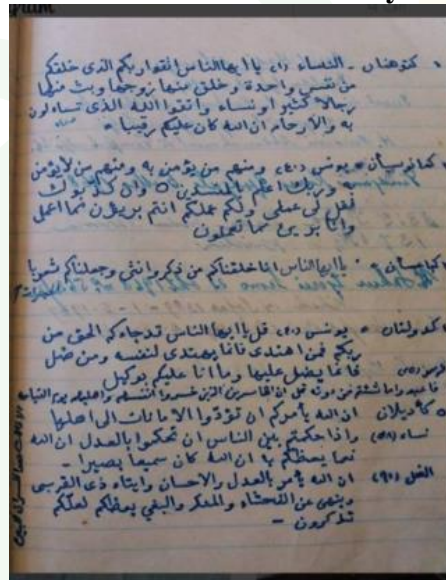 كنوهنان - النساء (١) يا ايها الناس اتقوا ربكم الذى خلقكم
من نفس واحدة وخلق منها زوجها وبث منها
رجالا كثيرا ونساء واتقوا الله الذى تساءلون
به والارحام ان الله كان عليكم رقيبا -
يونس (٤٠) ومنهم من يؤمن به ومنهم من لا يؤمن
به وربك اعلم بالمفسدين ○ وان كذبوك
فقل لى عملى ولكم عملكم انتم بريئون مما اعمل
وانا برىء مما تعملون
يا ايها الناس انا خلقناكم من ذكر وانثى وجعلناكم شعوبا
يونس قل يا ايها الناس قد جاءكم الحق من
ربكم فمن اهتدى فانما يهتدى لنفسه ومن ضل
فانما يضل عليها وما انا عليكم بوكيل
فاعبدوا ما شئتم من دونه قل ان الخاسرين الذين خسروا انفسهم واهليهم يوم القيامة
ان الله يأمركم ان تؤدوا الامانات الى اهلها
نساء (٥٨) واذا حكمتم بين الناس ان تحكموا بالعدل ان الله
نعما يعظكم به ان الله كان سميعا بصيرا -
النحل (٩٠) ان الله يأمر بالعدل والاحسان وايتاء ذى القربى
وينهى عن الفحشاء والمنكر والبغي يعظكم لعلكم
تذكرون -